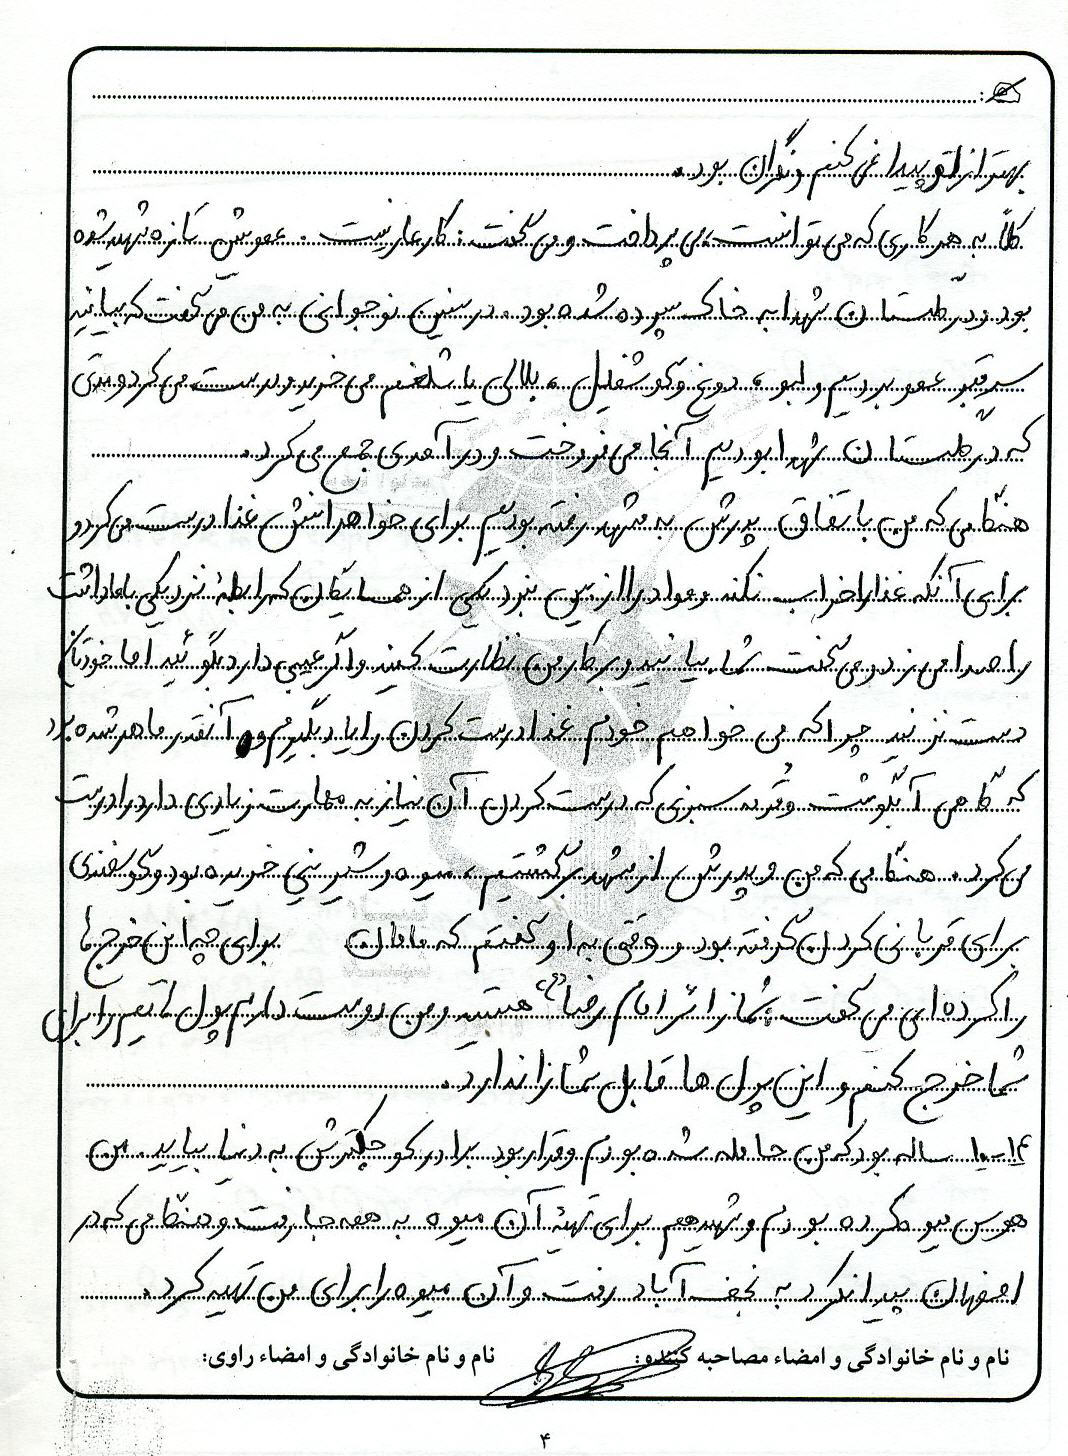 بهتر از او پیدا نمی کنم و نگران بود.
کلاً به هر کاری که می توانست، می پرداخت و می گفت: کار عار نیست. عمویش تازه شهید شده
بود و در گلستان شهدا به خاک سپرده شده بود. در سنین نوجوانی به من می گفت که بیائید
سر قبر عمو برویم و لبو، دوغ و گوشفیل، بلالی یا شلغم می خرید و درست می کرد و وقتی
که در گلستان شهدا بودیم آنجا می فروخت و درآمدی جمع می کرد.
هنگامی که من با تفاق پدرش به مشهد رفته بودیم برای خواهرانش غذا درست می کرد و
برای آنکه غذا را خراب نکند و مواد را از بین نبرد یکی از همسایگان که رابطهٔ نزدیکی با ما داشت
را صدا می زد و می گفت شما بیائید و بر کار من نظارت کنید و اگر عیبی دارد بگوئید اما خودتان
دست نزنید چرا که می خواهم خودم غذا درست کردن را یاد بگیرم و آنقدر ماهر شده بود
که گاهی آبگوشت و قرمه سبزی که درست کردن آن نیاز به مهارت زیادی دارد را درست
می کرد. هنگامی که من و پدرش از مشهد برگشتیم، میوه و شیرینی خریده بود و گوسفندی
برای قربانی کردن گرفته بود و وقتی به او گفتم که مامان برای چه این خرج ها
را کرده ای می گفت: شما زائر امام رضا (ع) هستید و من دوست دارم پول هایم را برای
شما خرج کنم و این پول ها قابل شما را ندارد.
ساله بود که من حامله شده بودم و قرار بود برادر کوچکترش به دنیا بیاید. من
هوس میوه کرده بودم و شهید هم برای تهیهٔ آن میوه به همه جا رفت و هنگامی که در
اصفهان پیدا نکرد به نجف آباد رفت و آن میوه را برای من تهیه کرد.
نام و نام خانوادگی و امضاء مصاحبه کننده: نام و نام خانوادگی و امضاء راوی:
۴